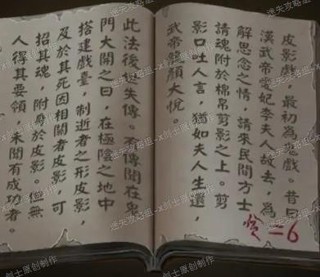 皮影戲，最初為鬼戲。昔日
漢武帝愛妃李夫人故去，為
解思念之情，請來民間方士
請魂附於棉帛剪影之上。剪
影口吐人言，猶如夫人生還，
武帝龍顏大悅。
二6
此法後世失傳。有傳聞在鬼
門大開之日，在極陰之地中
搭建戲臺，制逝者之形皮影，
及於其死因相關者皮影，可
招其魂，附身於皮影。但無
人得其要領，未聞有成功者。